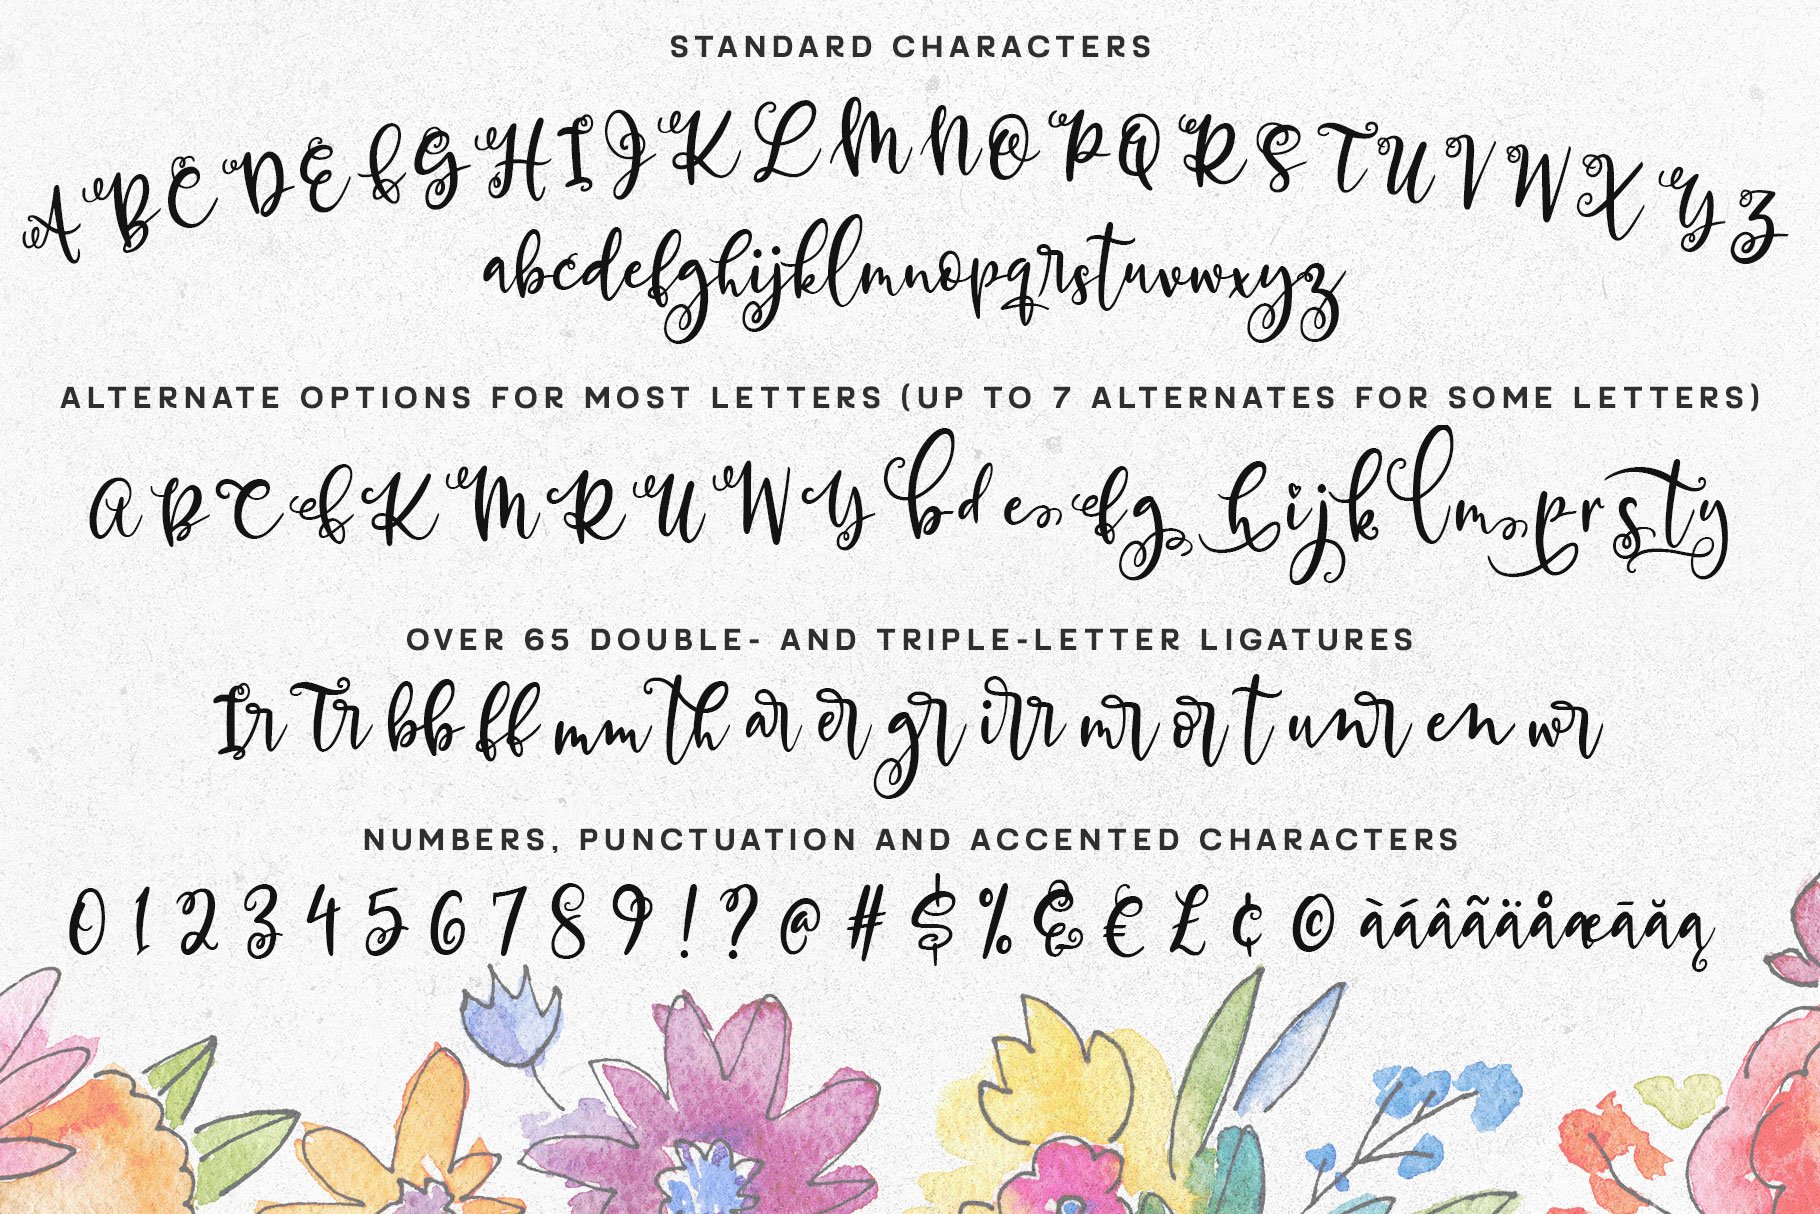 STANDARD CHARACTERS
A B C D E f G H I J K L M N O P Q R S T U V W X Y Z
abcdefghijklmnopqrstuvwxyz
ALTERNATE OPTIONS FOR MOST LETTERS (UP TO 7 ALTERNATES FOR SOME LETTERS)
A B C f K M R U W Y b d e f g h i j k l m p r s t y
OVER 65 DOUBLE- AND TRIPLE-LETTER LIGATURES
Ir Tr bb ff mm th ar er gr irr mr or t un r en wr
NUMBERS, PUNCTUATION AND ACCENTED CHARACTERS
0 1 2 3 4 5 6 7 8 9 ! ? @ # $ % & € £ ¢ © àáâãäåæāăą